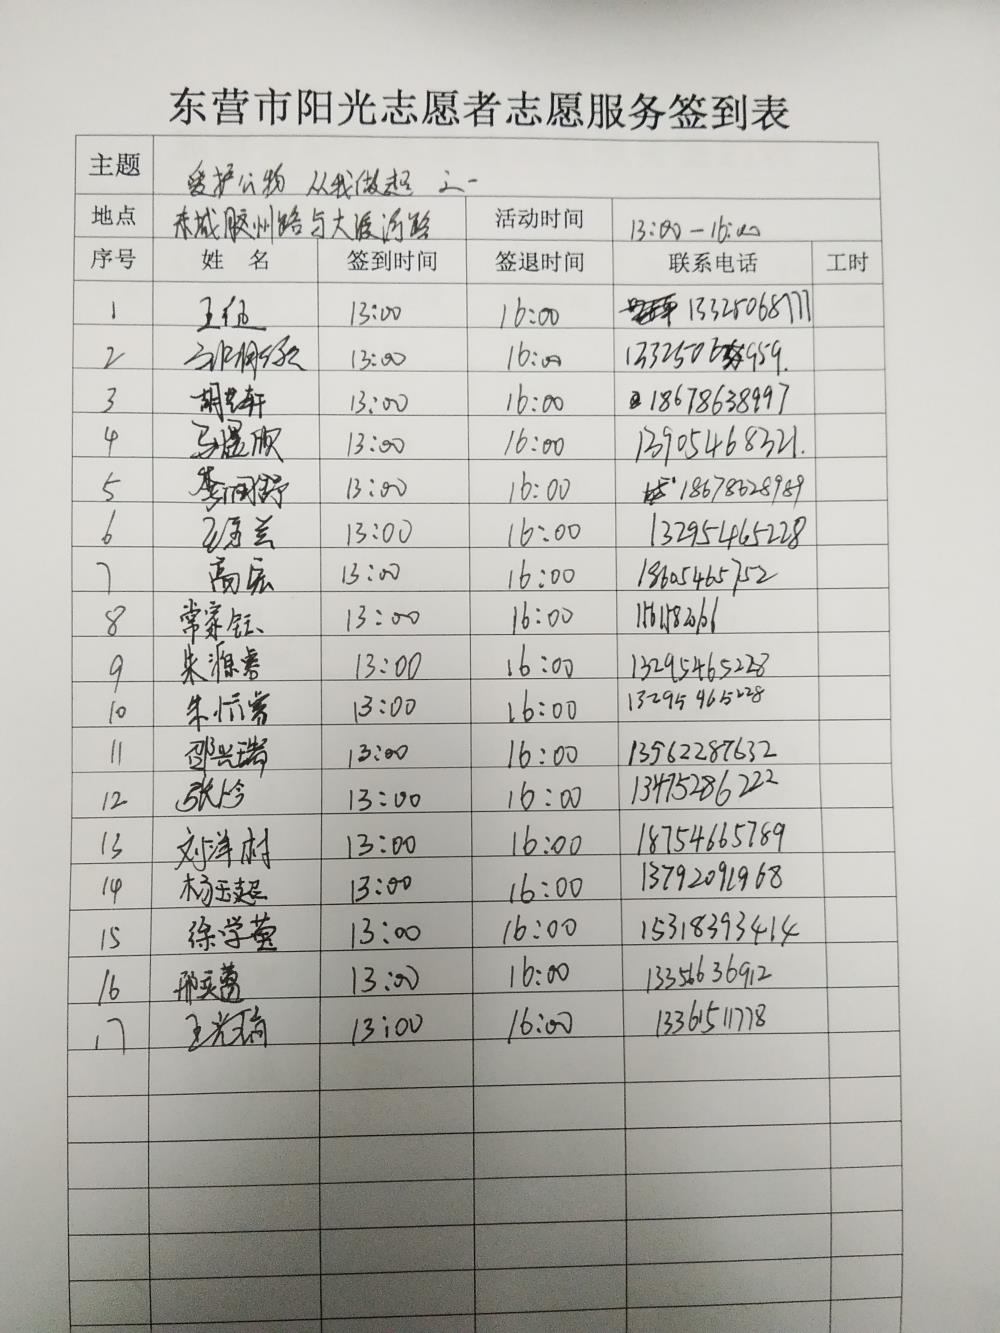 东营市阳光志愿者志愿服务签到表
主题 爱护公物 从我做起 之一
地点 东城胶州路与大渡河路 活动时间 13:00-16:00
序号 姓名 签到时间 签退时间 联系电话 工时
1 13:00 16:00 13325068777
2 13:00 16:00
3 胡艺轩 13:00 16:00 18678638997
4 13:00 16:00 13905468321.
5 13:00 16:00 18678628989
6 13:00 16:00 13295465228
7 高宏 13:00 16:00 18605465752
8 常家钰 13:00 16:00
9 朱源睿 13:00 16:00 13295465228
10 朱恒睿 13:00 16:00 13295465228
11 邵兴瑞 13:00 16:00 13562287632
12 13:00 16:00 13475286222
13 刘洋村 13:00 16:00 18754665789
14 杨玉超 13:00 16:00 13792091968
15 徐学萱 13:00 16:00 15318393414
16 13:00 16:00 13356636912
17 13:00 16:00 13361511778